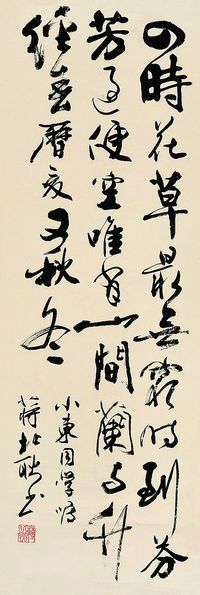 四時花草最無窮時到芬
芳過便空唯有山間蘭與竹
經春曆夏又秋冬
小東同學囑
蔣北耿書